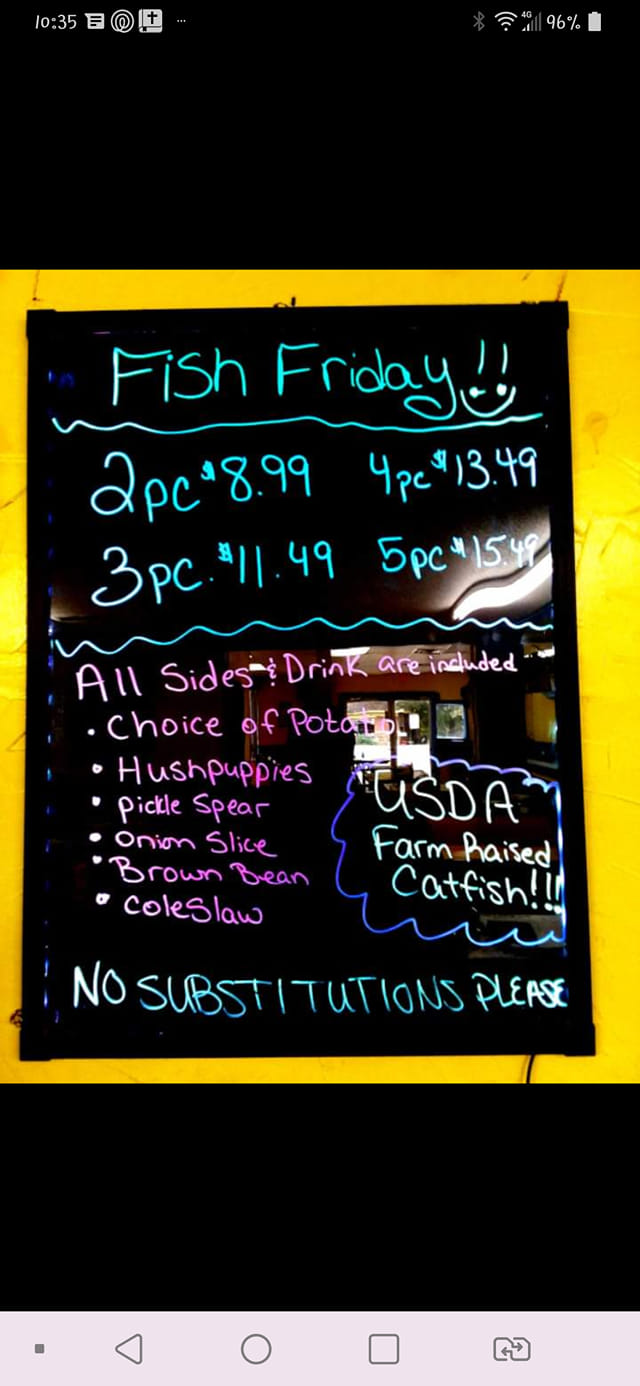 10:35
4G 96%
Fish Friday!!
2pc $8.99 4pc $13.49
3pc. $11.49 5pc $15.49
All Sides & Drink are included
• Choice of Potato
• Hushpuppies
• Pickle Spear
• Onion Slice
• Brown Bean
• ColeSlaw
USDA
Farm Raised
Catfish!!!
NO SUBSTITUTIONS PLEASE